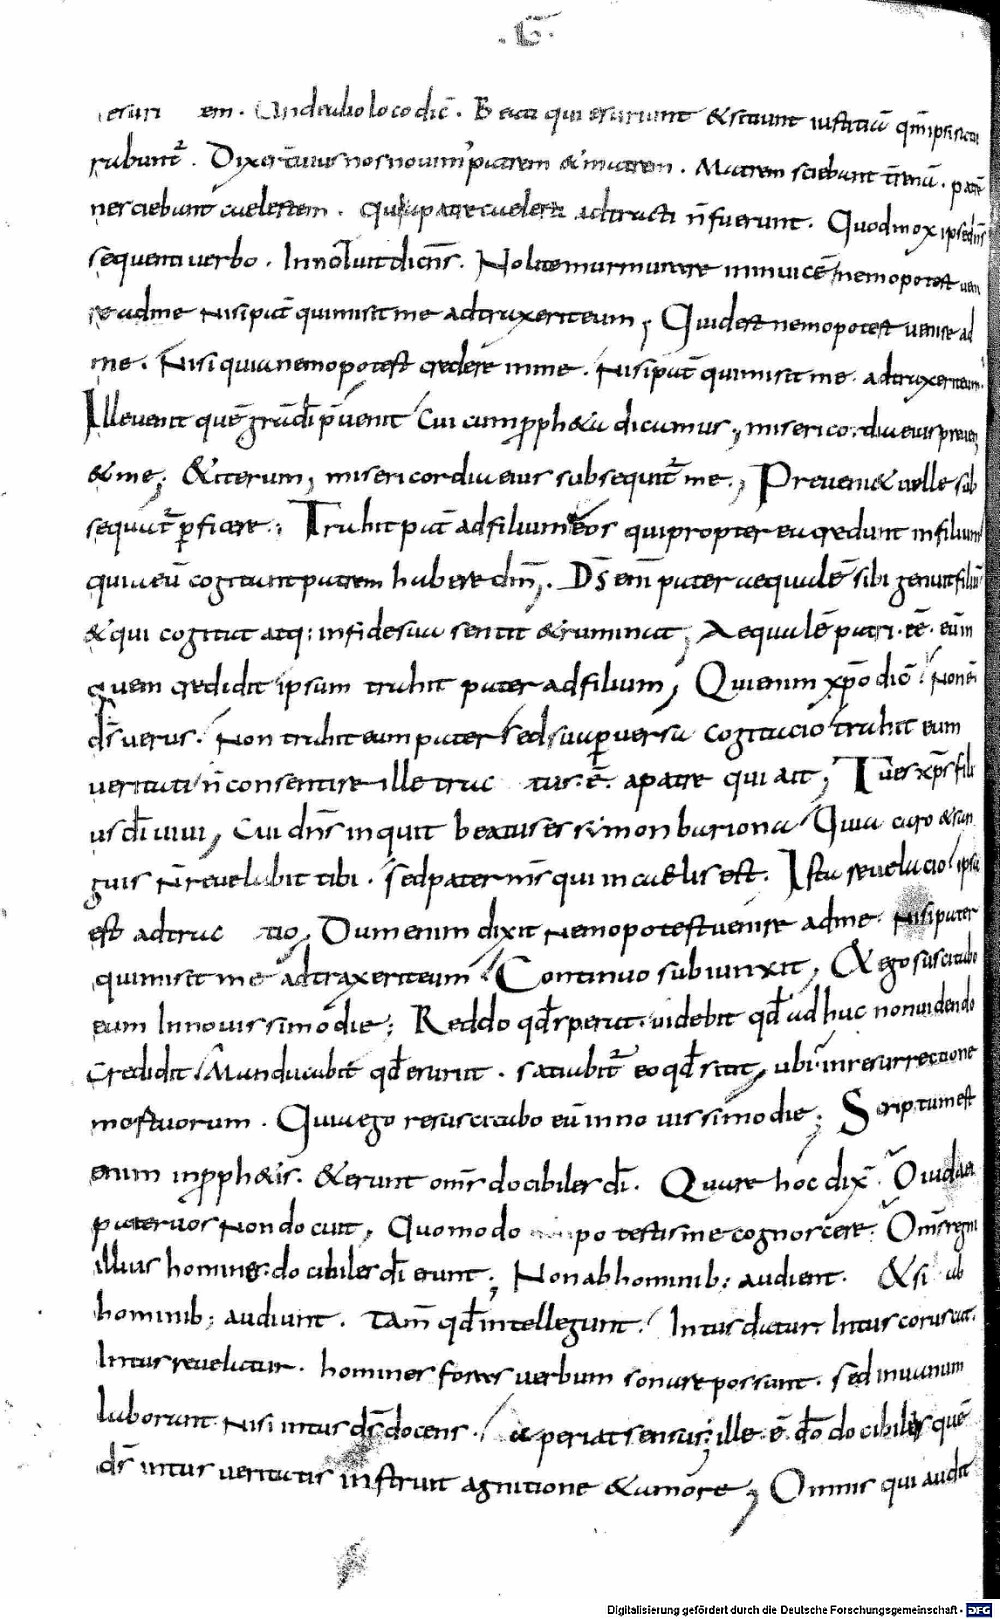 esuri em. Und & alio loco dic̄. Beati qui esuriunt & sitiunt iustitiā qm̄ ipsi satu
rabunt᷑. Dixerant᷑uius nos nouim᾽ patrem & matrem. Matrem sciebant t̄renā. patrē
nesciebant caelestem. quia patre caelesti adtracti n̄ fuerunt. Quod mox ipse dn̄s
sequenti uerbo. Innotuit dicens. Nolite murmurare in inuicē nemo potest ueni
re ad me nisi pat̄ qui misit me adtraxerit eum; Quid est nemo potest uenire ad
me. Nisi quia nemo potest credere in me. Nisi pat̄ qui misit me. adtraxerit eum.
Ille uenit quē gr̄a dī p̄uenit Cui cum ꝓph&a dicamus; misericordia eius preueni
& me; & iterum; misericordia eius subsequit᷑ me.; Preueni& uelle sub
sequat᷑ ꝑficere.; Trahit pat̄ ad filium eos qui propter ea credunt in filium
quia eū cogitant patrem habere dm̄;. D̄s em̄ pater aequalē sibi genuit filiū
& qui cogitat atq: in fide sua sentit & ruminat; Aequalē patri. eē. eū in
quem credidit ipsum trahit pater ad filium; Qui enim xp̄o dic̄ Non ē
ds̄ uerus. Non trahit eum pater sed sua ꝑuersa cogitacio trahit eum
ueritati n̄ consentire ille trac tus. ē. a patre qui ait; Tu es xp̄s fili
us dī uiui; Cui dn̄s inquit beatus es simon bariona Quia caro & san
guis N̄ reuelabit tibi. sed pater m̄s qui in caelis est. Ista reuelacio ipsa
est adtrac tio; Dum enim dixit Nemo potest uenire ad me. Nisi pater
qui misit me adtraxerit eum Continuo subiunxit; & ego suscitabo
eum In nouissimo die; Reddo qđ sperat. uidebit qđ ad huc non uidendo
Credidit Manducabit qđ esurit. satiabit᷑ eo qđ sitit, ubi. in resurrectione
mortuorum. Quia ego resuscitabo eū in nouissimo die; Scriptum est
enim in ꝓph&is. & erunt oms̄ docibiles dī. Quare hoc dix̄.
pater uos Non docuit, Quomodo potestis me cognoscere; Oms̄ regni
illius homines: docibiles dī erunt; Non ab hominib; audient. & si ab
hominib; audiunt. Tam̄ qđ intellegunt. Intus datur. Intus coruscat.
Intus reuelatur. homines foras uerbum sonare possunt. sed in uanum
laborant Nisi intus ds̄ docens. aperiat sensus; ille. ē. dō docibilis quē
ds̄ intus ueritatis instruit agnitione & amore; Omnis qui audit
Digitalisierung gefördert durch die Deutsche Forschungsgemeinschaft - DFG